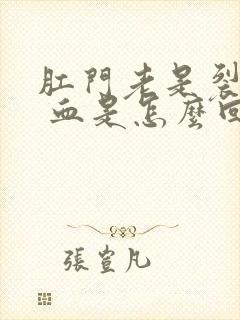 肛門老是裂
血是怎麼回
張萱凡